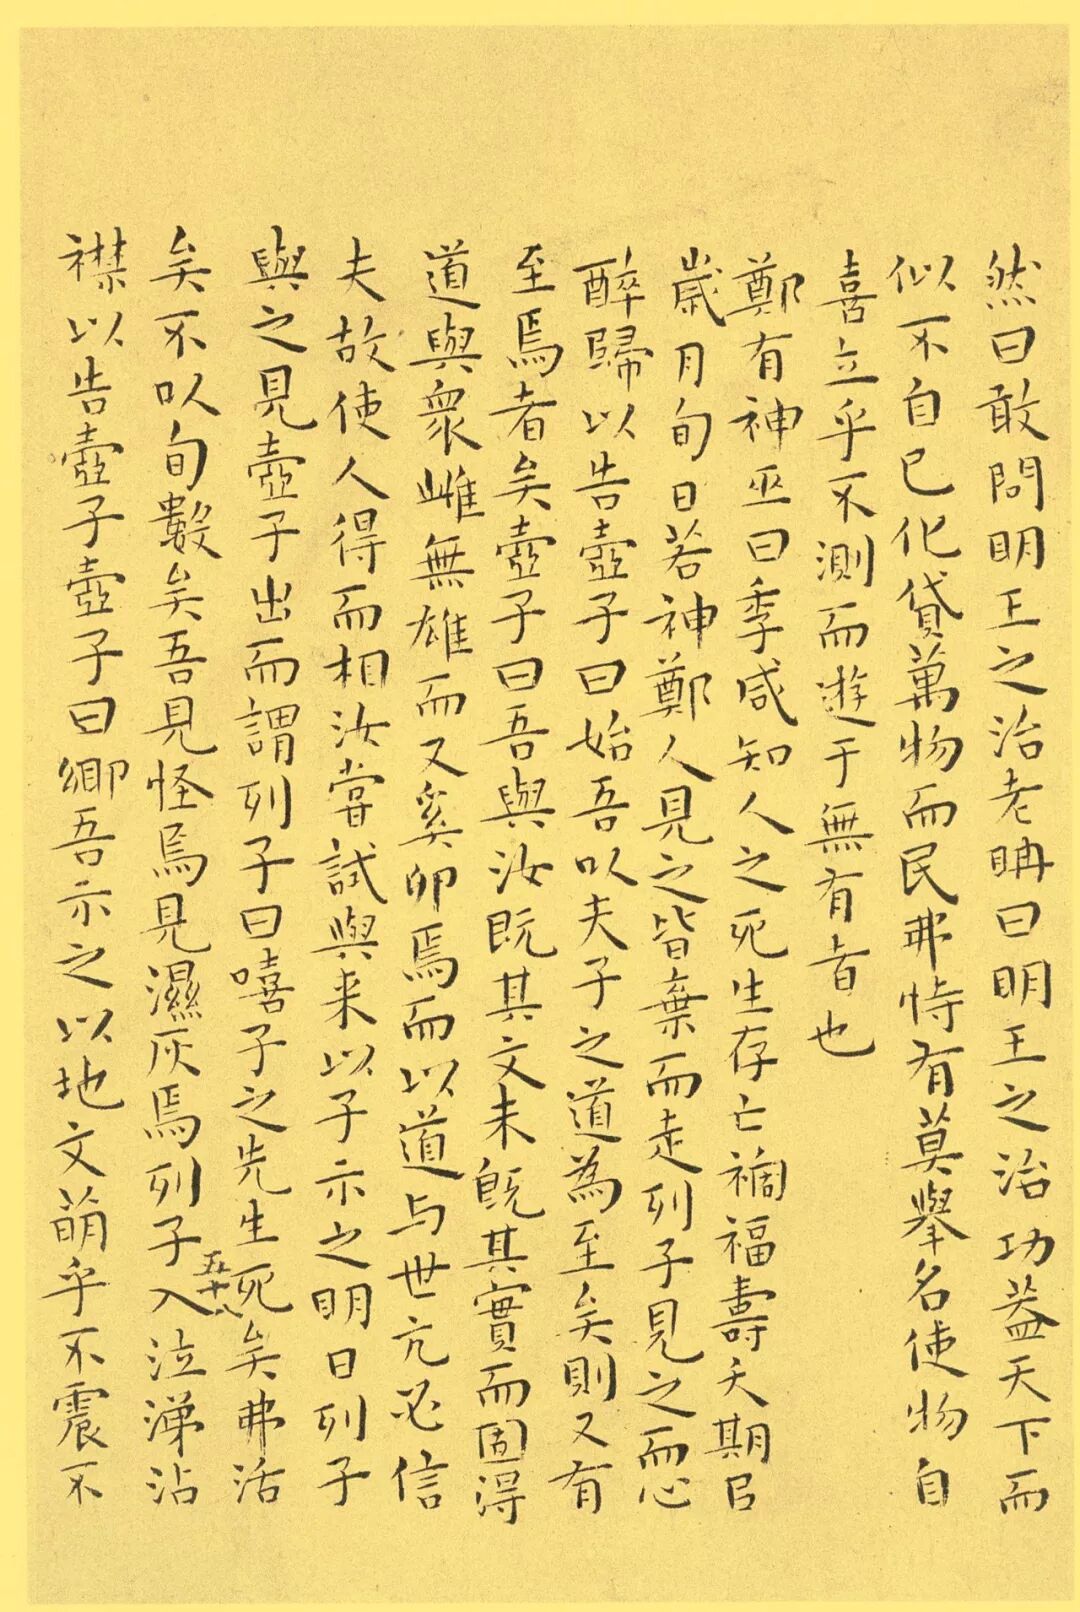 然曰敢問明王之治老聃曰明王之治功蓋天下而
似不自己化貸萬物而民弗恃有莫舉名使物自
喜立乎不測而遊于無有者也
鄭有神巫曰季咸知人之死生存亡禍福壽夭期以
歲月旬日若神鄭人見之皆棄而走列子見之而心
醉歸以告壺子曰始吾以夫子之道為至矣則又有
至焉者矣壺子曰吾與汝既其文未既其實而固得
道與衆雌無雄而又奚卵焉而以道与世亢必信
夫故使人得而相汝嘗試與来以予示之明日列子
與之見壺子出而謂列子曰嘻子之先生死矣弗活
矣不以旬數矣吾見怪焉見濕灰焉列子入泣涕沾
五十八
襟以告壺子壺子曰鄉吾示之以地文萌乎不震不